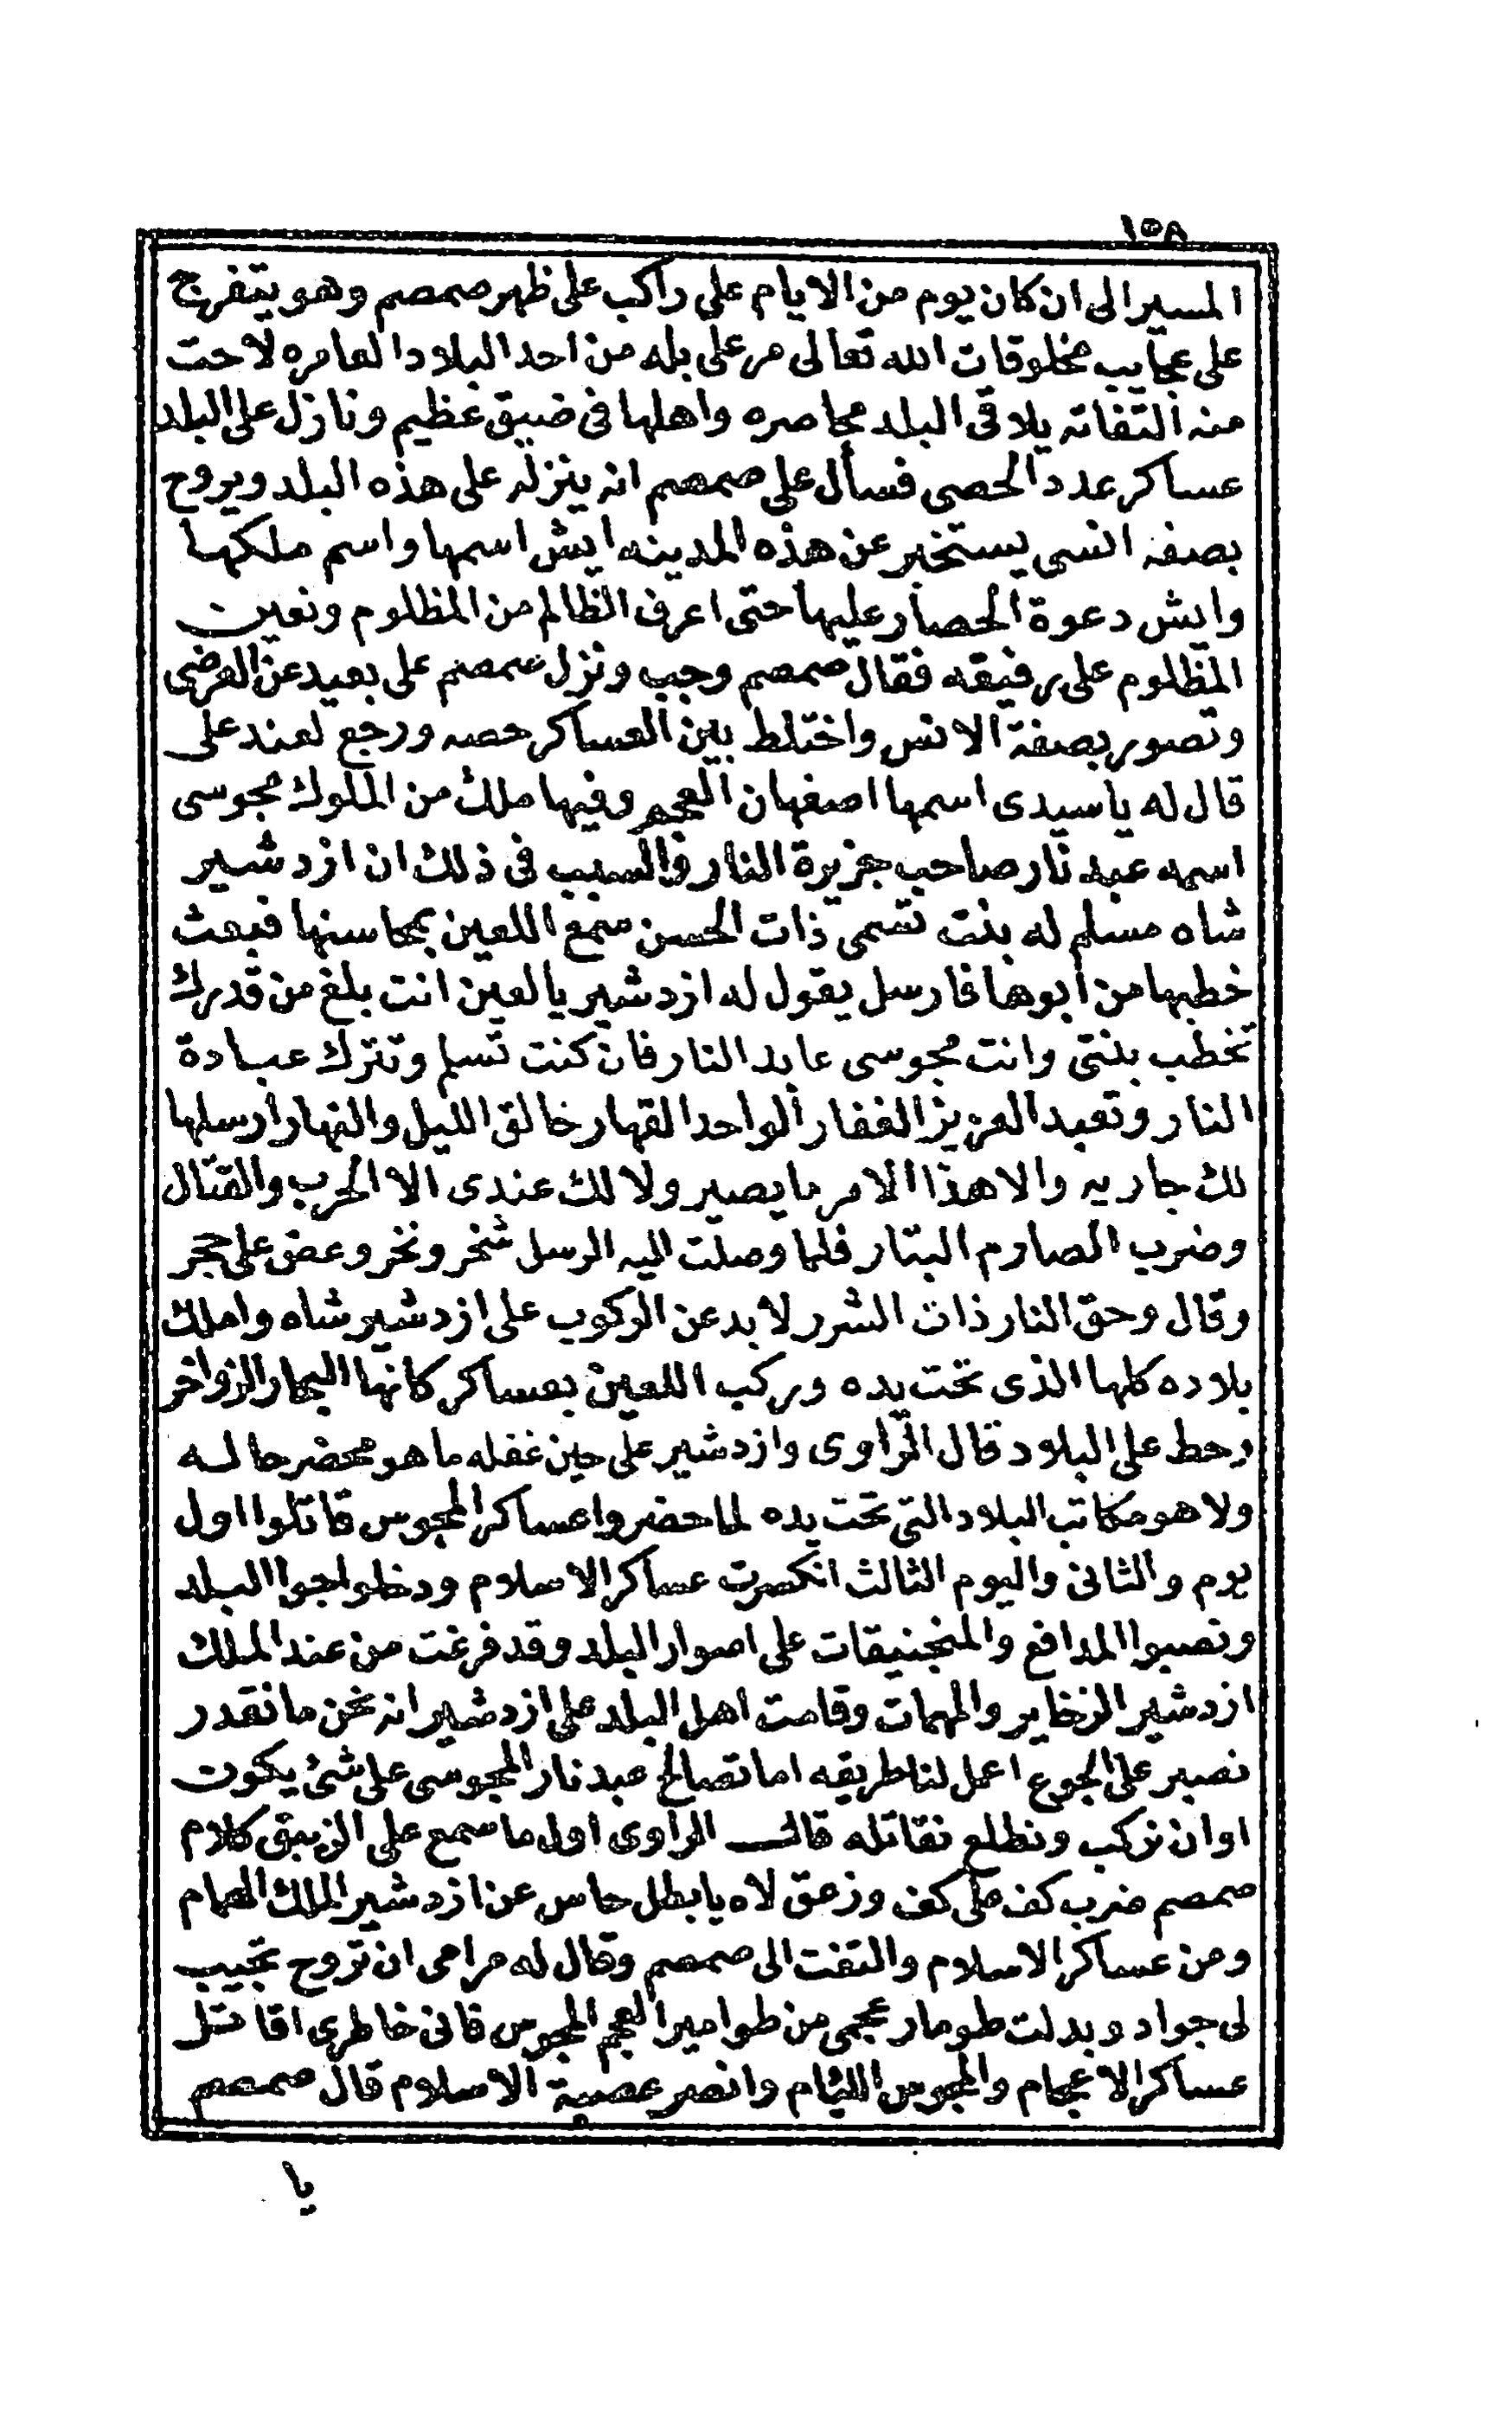 ١٥٨
المسير الى ان كان يوم من الايام على راكب على ظهر صمصم وهو يتفرج
على عجايب مخلوقات الله تعالى مر على بله من احد البلاد العامره لاحت
منه التفاته يلاقى البلد محاصره واهلها فى ضيق عظيم ونازل على البلد
عساكر عدد الحصى فسأل على صمصم انه ينزله على هذه البلد ويروح
بصفه انسى يستخبر عن هذه المدينه ايش اسمها واسم ملكها
وايش دعوة الحصار عليها حتى اعرف الظالم من المظلوم ونعين
المظلوم على رفيقه فقال صمصم وجب ونزل صمصم على بعيد عن العرضى
وتصور بصفة الانس واختلط بين العساكر حصه ورجع لعند على
قال له ياسيدى اسمها اصفهان العجم وفيها ملك من الملوك مجوسى
اسمه عبد نار صاحب جزيرة النار والسبب فى ذلك ان ازدشير
شاه مسلم له بنت تسمى ذات الحسن سمع اللعين بمحاسنها فبعث
خطبها من ابوها فارسل يقول له ازدشير يالعين انت بلغ من قدرك
تخطب بنتى وانت مجوسى عابد النار فان كنت تسلم وتترك عبادة
النار وتعبد العزيز الغفار الواحد القهار خالق الليل والنهار ارسلها
لك جاريه والا هذا الامر ما يصير ولا لك عندى الا الحرب والقتال
وضرب الصارم البتار فلما وصلت اليه الرسل شخر ونخر وعض على حجر
وقال وحق النار ذات الشرر لابد عن الركوب على ازدشير شاه واملك
بلاده كلها الذى تحت يده وركب اللعين بعساكر كانها البحار الزواخر
وحط على البلاد قال الراوى وازدشير على حين غفله ما هو محضر حاله
ولا هو مكاتب البلاد التى تحت يده لما حضروا عساكر المجوس قاتلوا اول
يوم والثانى واليوم الثالث انكسرت عساكر الاسلام ودخلوا جوا البلد
ونصبوا المدافع والمنجنيقات على اصوار البلد وقد فرغت من عند الملك
ازدشير الزخاير والمهمات وقامت اهل البلد على ازدشير انه نحن ما نقدر
نصبر على الجوع اعمل لنا طريقه اما تصالح عبد نار المجوسى على شئ يكون
او ان نركب ونطلع نقاتله قال الراوى اول ما سمع على الزيبق كلام
صمصم ضرب كف على كف وزعق لاه يا بطل حاس عن ازدشير الملك الهمام
ومن عساكر الاسلام والتفت الى صمصم وقال له مرامى ان تروح تجيب
لى جواد وبدلت طومار عجمى من طوامير العجم المجوس فانى خاطرى اقاتل
عساكر الاعجام والمجوس الليئام وانصر عصبة الاسلام قال صمصم
يا